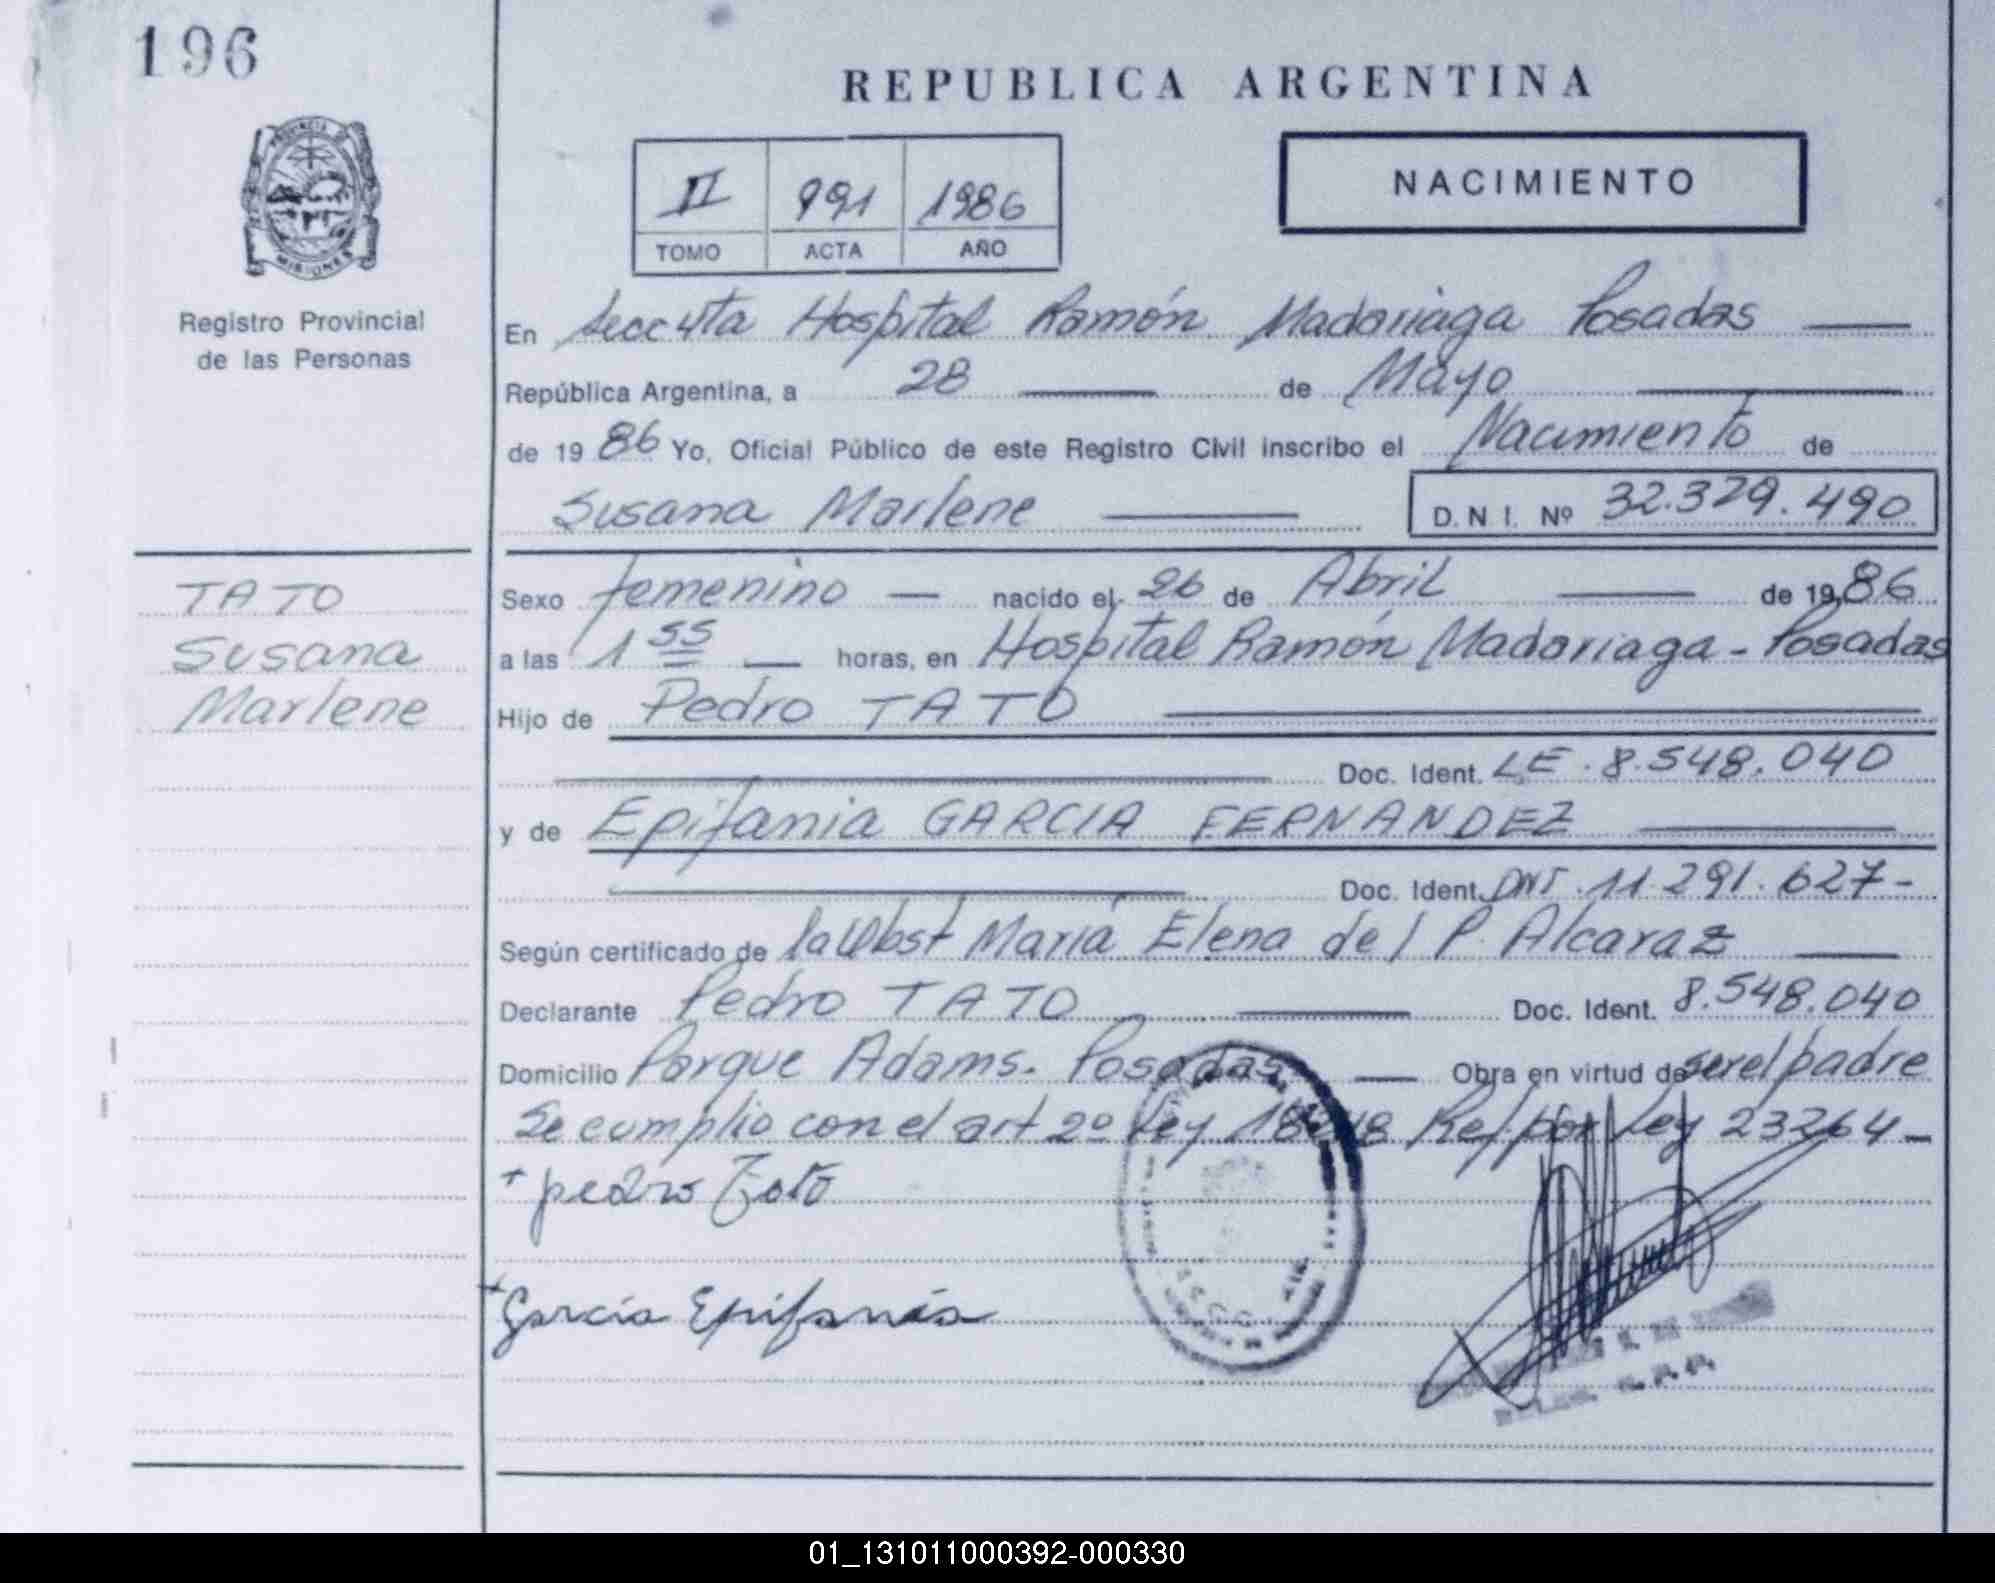 196
REPUBLICA ARGENTINA
PROVINCIA DE
MISIONES
Registro Provincial
de las Personas
II 991 1986
TOMO ACTA AÑO
NACIMIENTO
En Secc 4ta Hospital Ramón Madariaga Posadas
República Argentina, a 28 de Mayo
de 1986 Yo, Oficial Público de este Registro Civil inscribo el Nacimiento de
Susana Marlene D.N.I. Nº 32.329.490
TATO
Susana
Marlene
Sexo femenino nacido el 26 de Abril de 1986
a las 1 55 horas, en Hospital Ramón Madariaga - Posadas
Hijo de Pedro TATO
Doc. Ident. LE. 8.548.040
y de Epifania GARCIA FERNANDEZ
Doc. Ident. DNI. 11.291.627-
Según certificado de la Obst María Elena del P. Alcaraz
Declarante Pedro TATO Doc. Ident. 8.548.040
Domicilio Parque Adams. Posadas Obra en virtud de ser el padre
Se cumplio con el art 2º Ley 18248 Ref por Ley 23264-
+ pedro Tato
+ Garcia Epifania
01_131011000392-000330